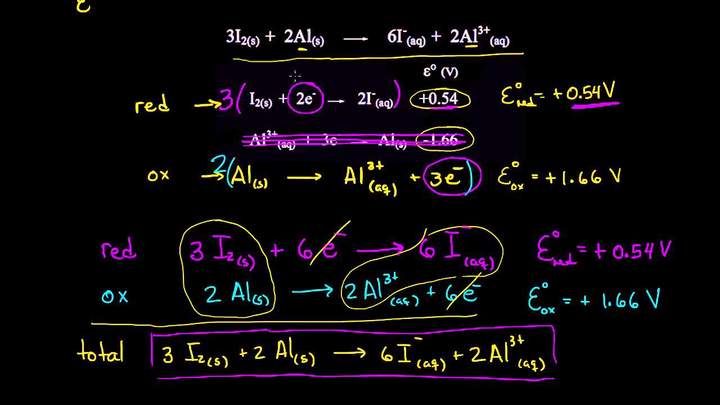 ε
3I₂(s) + 2Al(s) → 6I⁻(aq) + 2Al³⁺(aq)
ε° (V)
red → 3( I₂(s) + 2e⁻ → 2I⁻(aq) ) +0.54 ε°red = +0.54V
Al³⁺(aq) + 3e⁻ → Al(s) -1.66
ox → 2( Al(s) → Al³⁺(aq) + 3e⁻ ) ε°ox = +1.66 V
red 3 I₂(s) + 6e⁻ → 6 I⁻(aq) ε°red = +0.54 V
ox 2 Al(s) → 2Al³⁺(aq) + 6e⁻ ε°ox = + 1.66 V
total 3 I₂(s) + 2 Al(s) → 6I⁻(aq) + 2Al³⁺(aq)